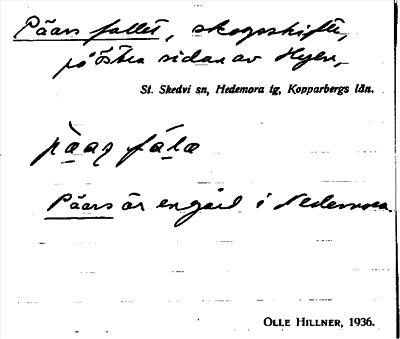 Pärs fallet, skogsskifte,
på östra sidan av Hyen,
St. Skedvi sn, Hedemora tg, Kopparbergs län.
Pärs är en gård i Nedernora.
OLLE HILLNER, 1936.